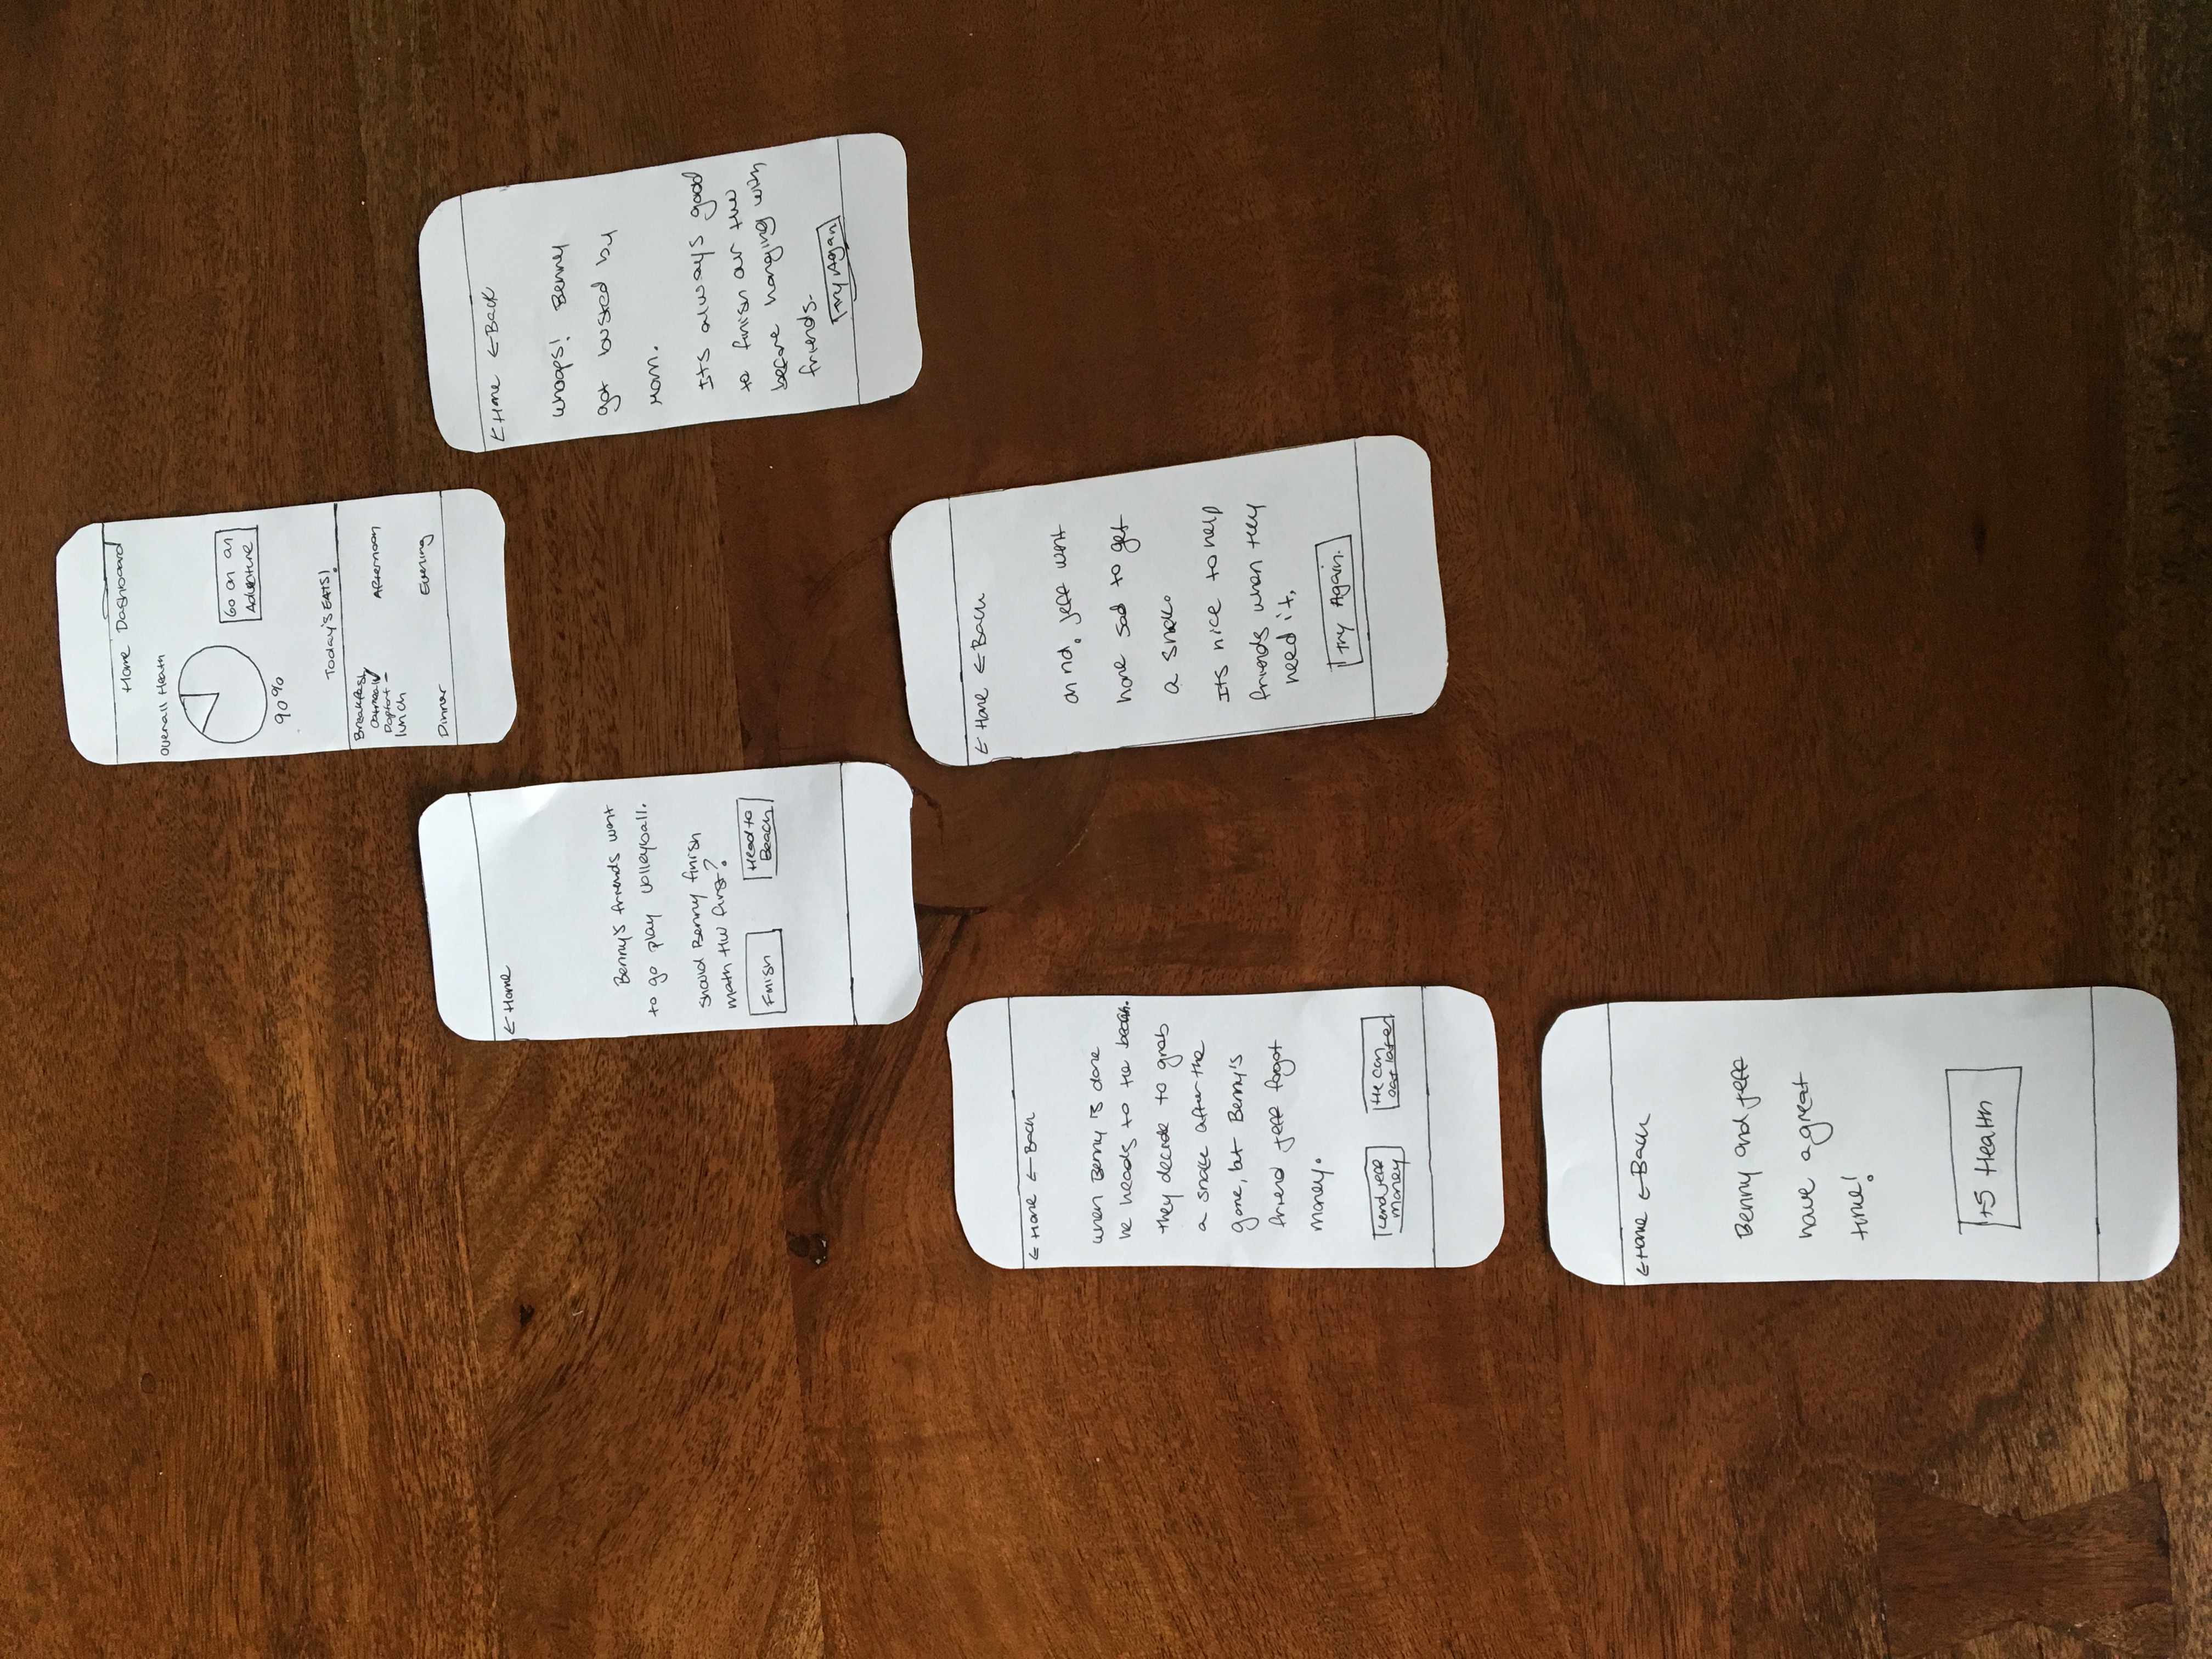 Home Dashboard
Overall Heath
Go on an
Adventure
90%
Today's EATS!
Breakfast
Oatmeal ✓
Poptart –
lunch
Dinner
Afternoon
Evening
← Home
Benny's friends want
to go play volleyball.
Should Benny finish
math HW first?
Finish
Head to
Beach
← Home ← Back
Whoops! Benny
got busted by
mom.
Its always good
to finish our HW
before hanging with
friends.
Try Again
← Home ← Back
when Benny is done
he heads to the beach.
they decide to grab
a snack after the
game, but Benny's
friend Jeff forgot
money.
Lend Jeff
money
He can
eat later
← Home ← Back
oh no. Jeff went
home sad to get
a snack.
Its nice to help
friends when they
need it.
Try Again.
← Home ← Back
Benny and Jeff
have a great
time!
+5 Health